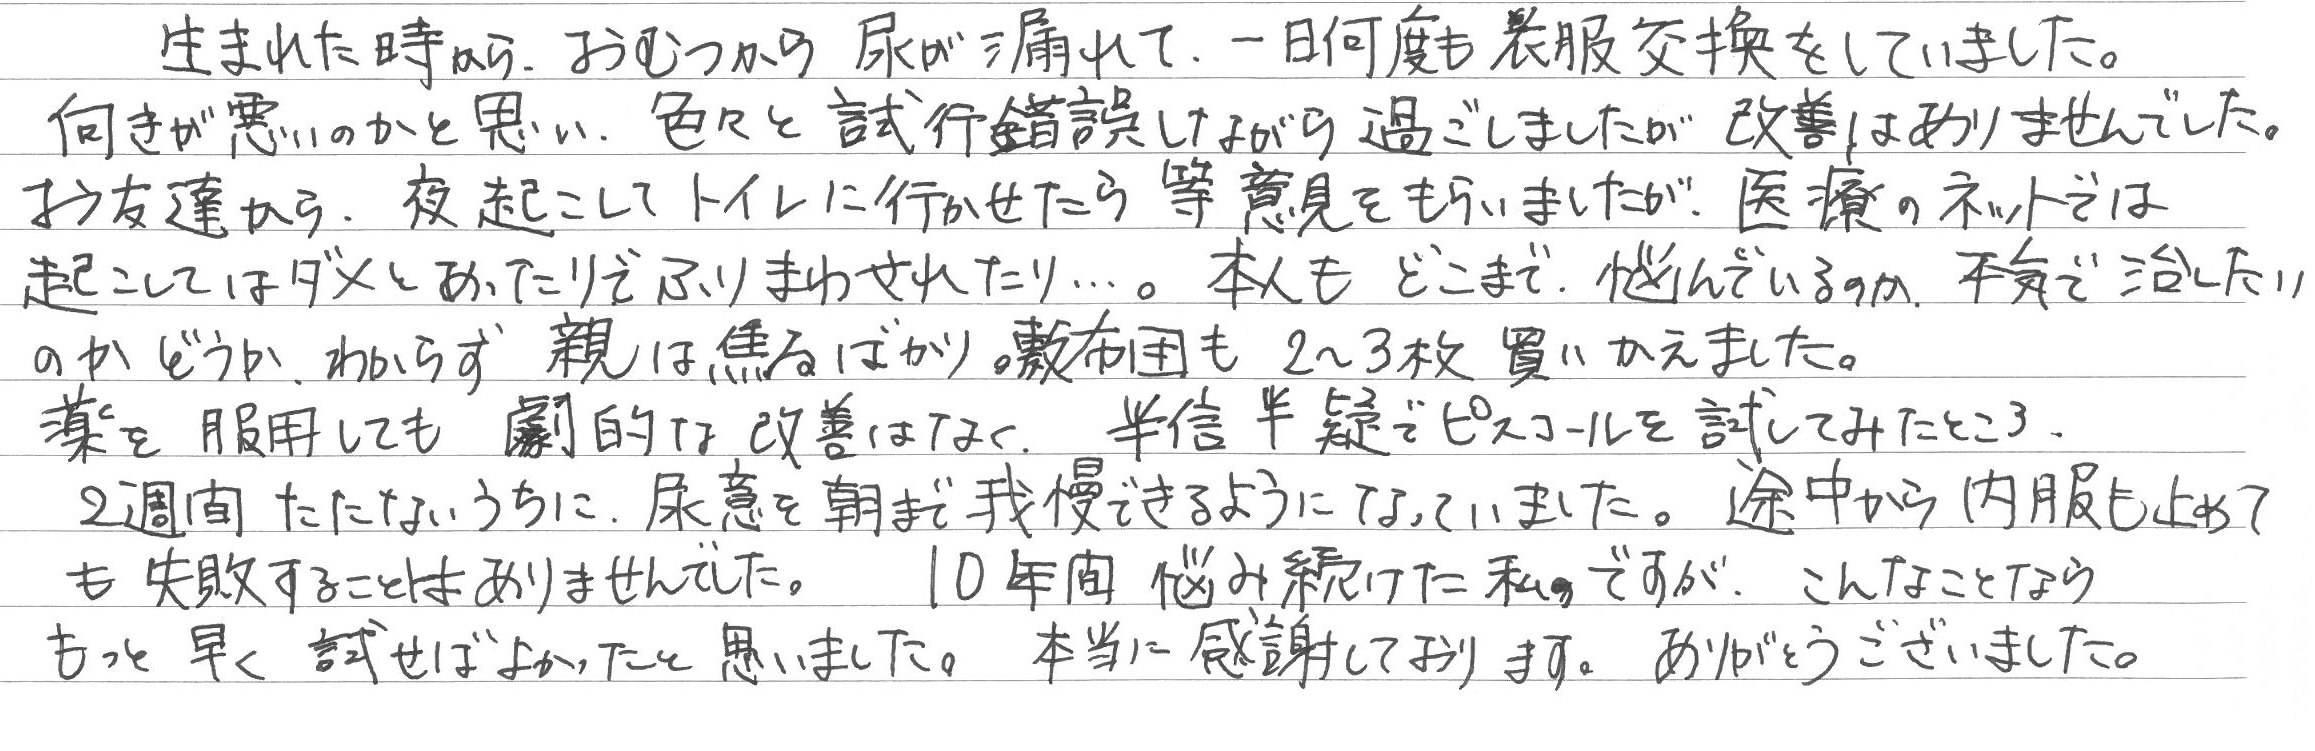 生まれた時から、おむつから尿が漏れて、一日何度も衣服交換をしていました。
何きが悪いのかと思い、色々と試行錯誤しながら過ごしましたが改善はありませんでした。
お友達から、夜起こしてトイレに行かせたら等意見をもらいましたが、医療のネットでは
起こしてはダメとあったりでふりまわされたり…。本人もどこまで、悩んでいるのか、本気で治したい
のかどうか、わからず親は焦るばかり。敷布団も2~3枚買いかえました。
薬を服用しても劇的な改善はなく、半信半疑でピスコールを試してみたところ、
2週間たたないうちに、尿意を朝まで我慢できるようになっていました。途中から内服も止めて
も失敗することはありませんでした。 10年間悩み続けた私ですが、こんなことなら
もっと早く試せばよかったと思いました。本当に感謝しております。ありがとうございました。